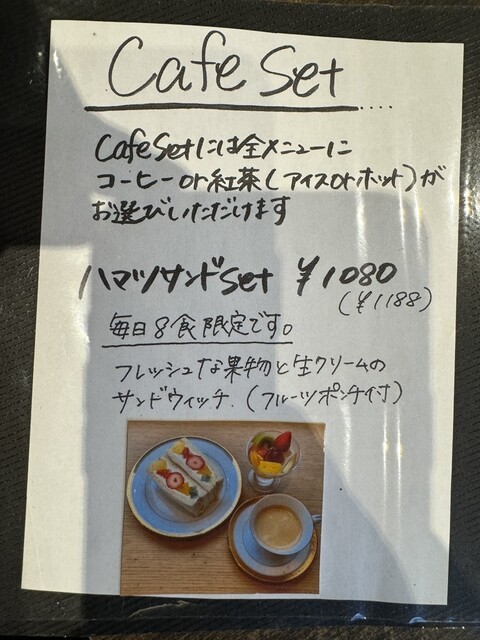 Cafe Set
Cafe Setには全メニューに
コーヒーor紅茶(アイスorホット)が
お選びいただけます
ハマツサンドset ¥1080
(¥1188)
毎日8食限定です。
フレッシュな果物と生クリームの
サンドウィッチ.(フルーツポンチ付)